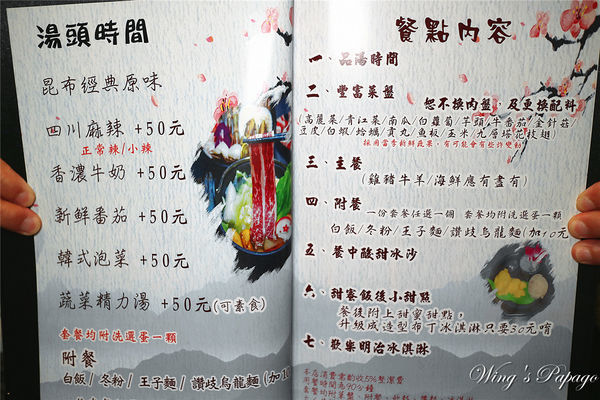 湯頭時間
昆布經典原味
四川麻辣 +50元
正常辣/小辣
香濃牛奶 +50元
新鮮番茄 +50元
韓式泡菜 +50元
蔬菜精力湯 +50元(可素食)
套餐均附洗選蛋一顆
附餐
白飯/ 冬粉/ 王子麵/ 讚歧烏龍麵(加10
餐點內容
一、品湯時間
二、豐富菜盤
恕不換內盤,及更換配料
(高麗菜/青江菜/南瓜/白蘿蔔/芋頭/牛番茄/金針菇
豆皮/白蝦/蛤蠣/貢丸/魚板/玉米/九層塔花枝翅
採用當季新鮮蔬果,有可能會有些許變動
三、主餐
(雞豬牛羊/海鮮應有盡有)
四、附餐
一份套餐任選一個 套餐均附洗選蛋一顆
白飯/冬粉/王子麵/讚歧烏龍麵(加10元
五、餐中酸甜冰沙
六、甜蜜飯後小甜點
餐後附上甜蜜甜點,
升級成造型布丁冰淇淋只要30元唷
七、歡樂明治冰淇淋
本店消費需酌收5%整潔費
用餐時間為90分鐘
Wing's Papago